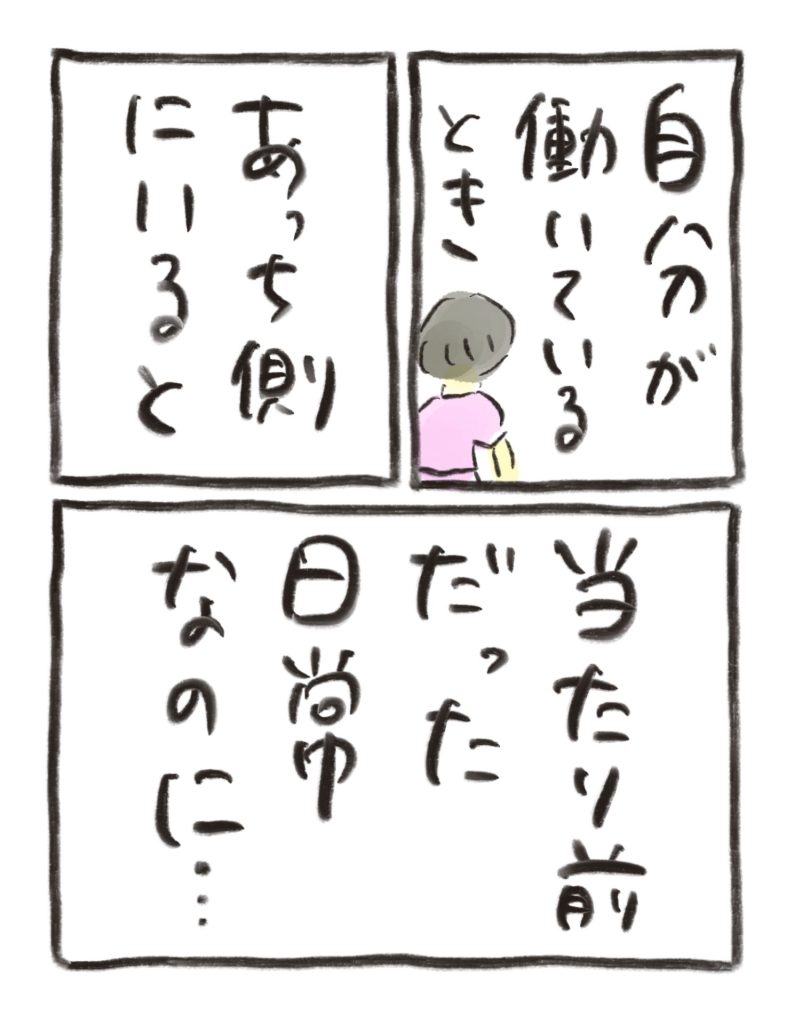 自分が
働いている
とき、
あっち側
にいると
当たり前
だった
日常
なのに…